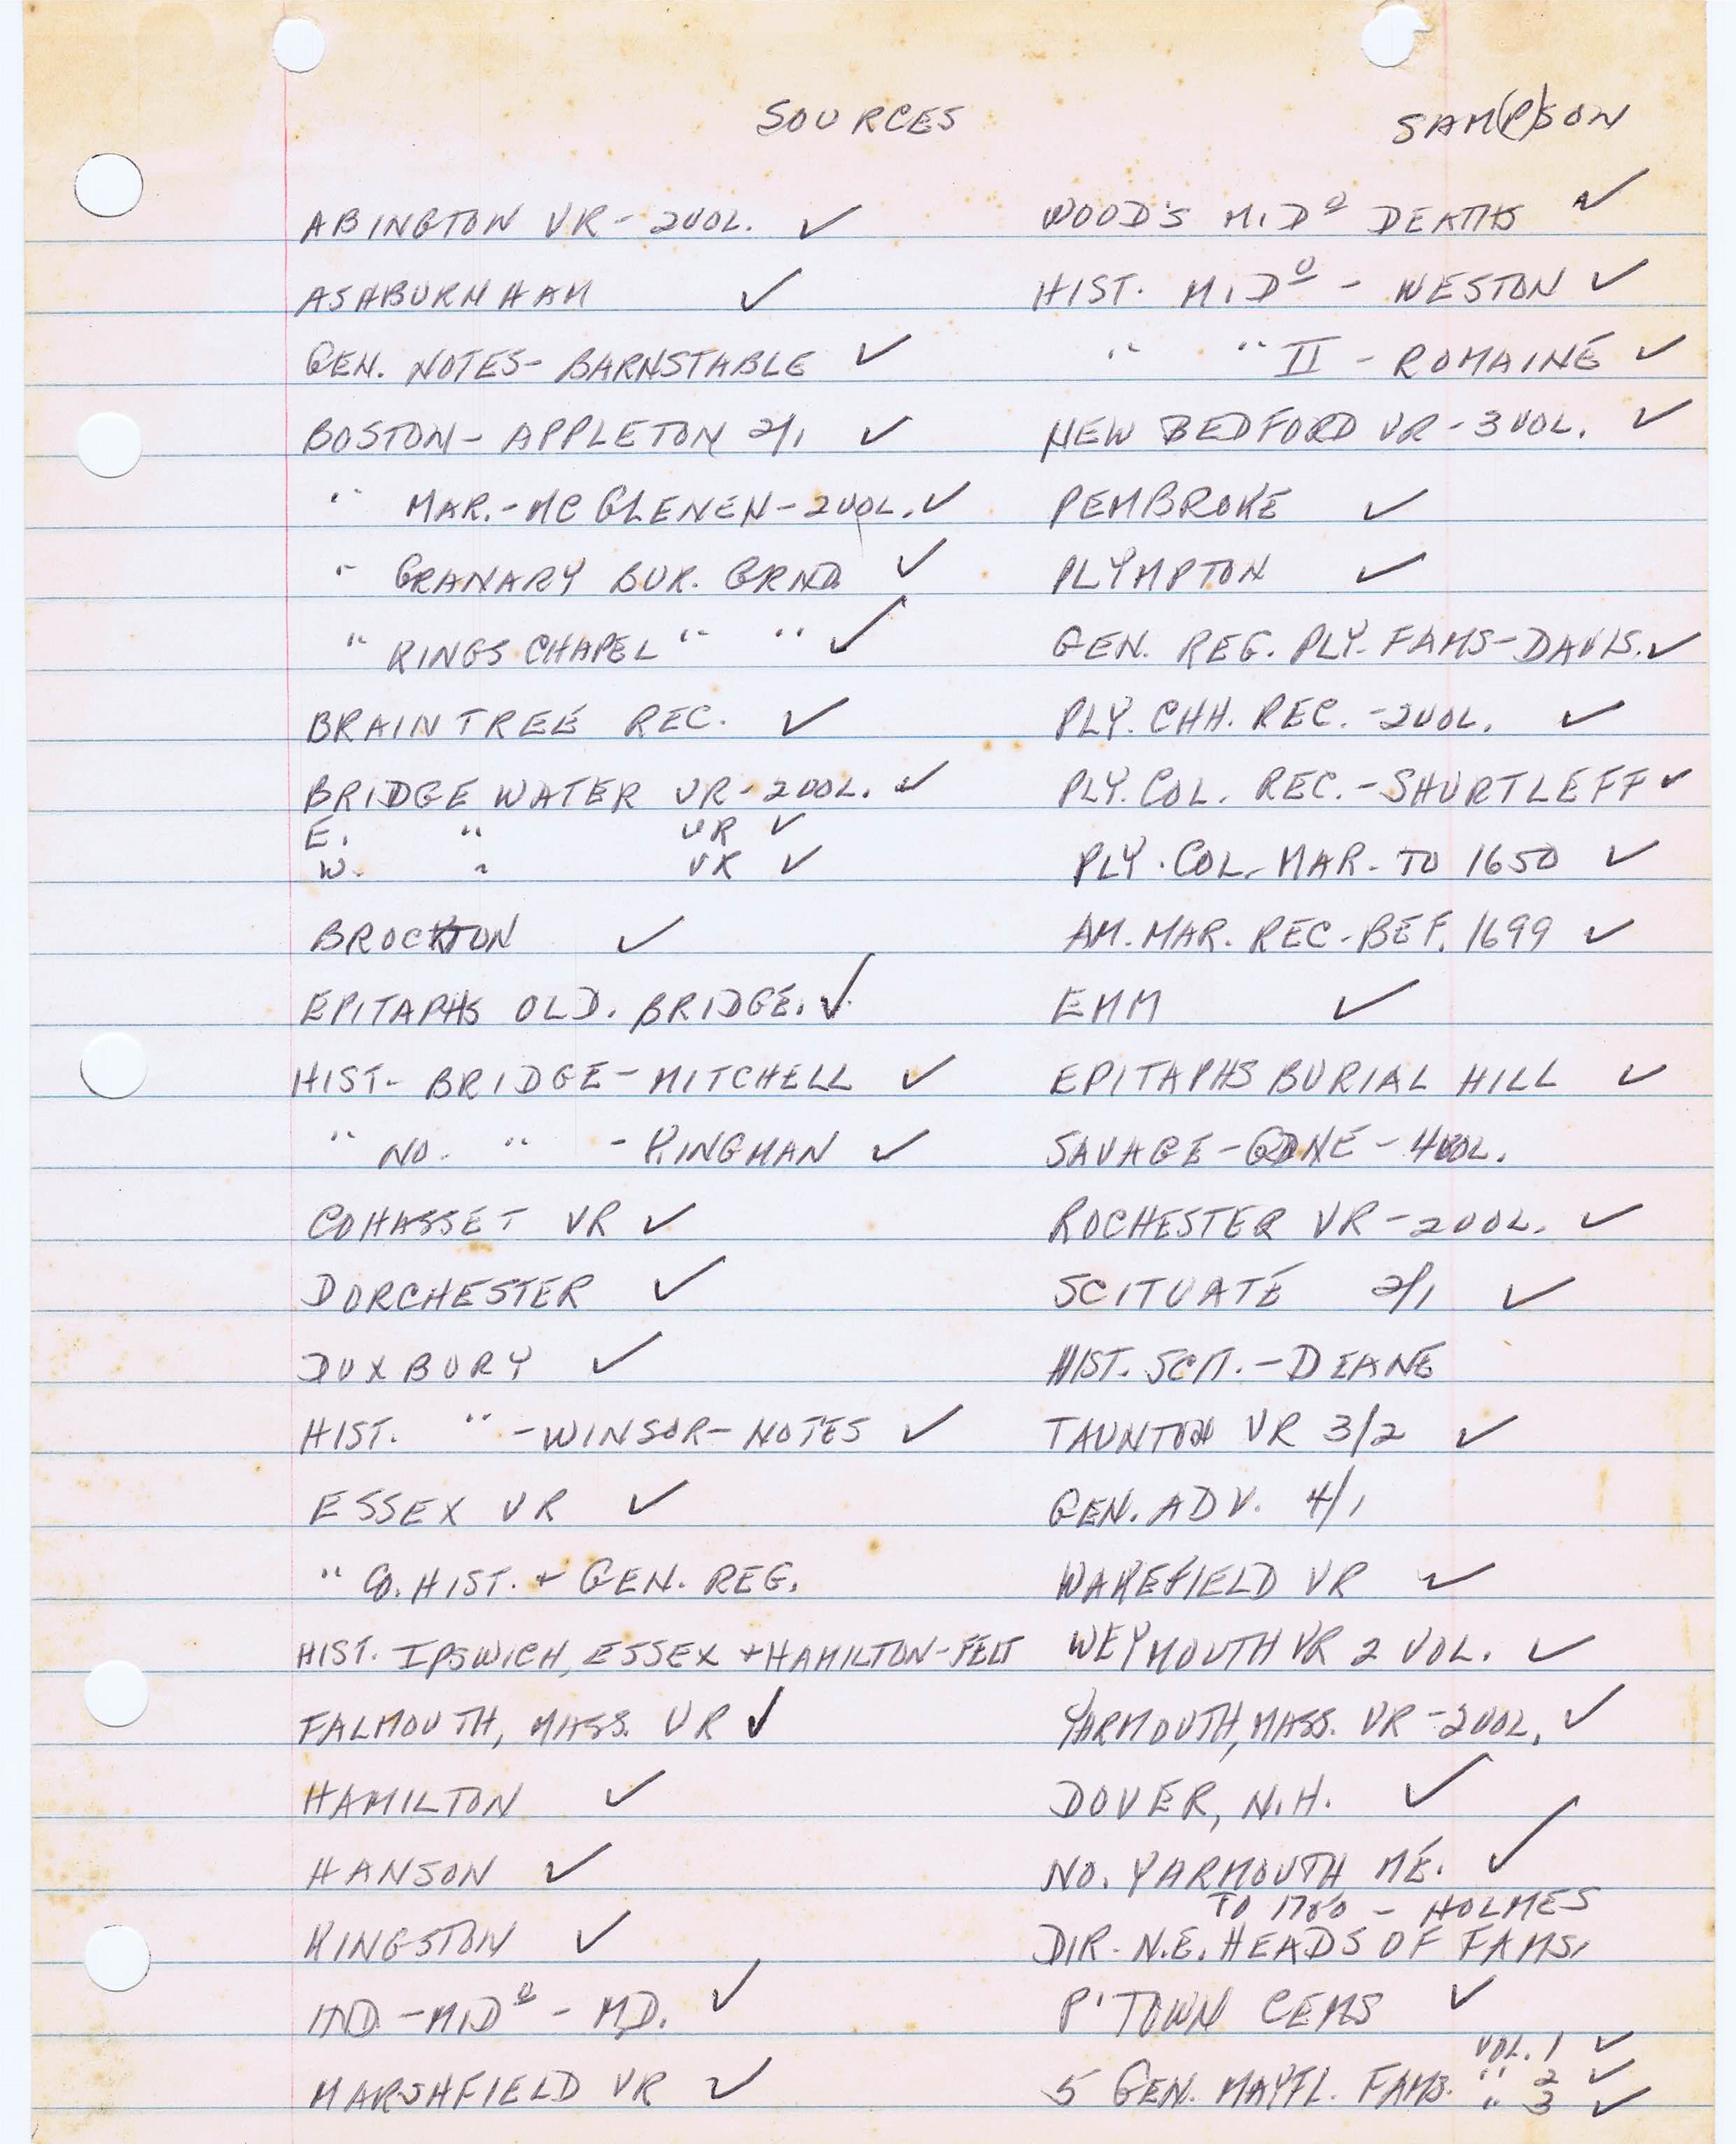 SOURCES
SAM(P)SON
ABINGTON VR - 2 VOL. ✓
ASHBURNHAM ✓
GEN. NOTES - BARNSTABLE ✓
BOSTON - APPLETON 2/1 ✓
" MAR. - MCGLENEN - 2 VOL. ✓
" GRANARY BUR. GRND ✓
" KINGS CHAPEL " " ✓
BRAINTREE REC. ✓
BRIDGEWATER VR - 2 VOL. ✓
E. " VR ✓
W. " VR ✓
BROCKTON ✓
EPITAPHS OLD. BRIDGE. ✓
HIST - BRIDGE - MITCHELL ✓
" NO. " - KINGMAN ✓
COHASSET VR ✓
DORCHESTER ✓
DUXBURY ✓
HIST. " - WINSOR - NOTES ✓
ESSEX VR ✓
" CO. HIST. + GEN. REG.
HIST. IPSWICH, ESSEX + HAMILTON - FELT
FALMOUTH, MASS. VR ✓
HAMILTON ✓
HANSON ✓
KINGSTON ✓
IND - MIDº - MD. ✓
MARSHFIELD VR ✓
WOOD'S MIDº DEATHS ✓
HIST. MIDº - WESTON ✓
" " II - ROMAINE ✓
NEW BEDFORD VR - 3 VOL. ✓
PEMBROKE ✓
PLYMPTON ✓
GEN. REG. PLY. FAMS - DAVIS. ✓
PLY. CHH. REC. - 2 VOL. ✓
PLY. COL. REC. - SHURTLEFF ✓
PLY. COL. MAR. TO 1650 ✓
AM. MAR. REC - BEF. 1699 ✓
EMM ✓
EPITAPHS BURIAL HILL ✓
SAVAGE - GDNE - 4 VOL.
ROCHESTER VR - 2 VOL. ✓
SCITUATE 2/1 ✓
HIST. SCIT. - DEANE
TAUNTON VR 3/2 ✓
GEN. ADV. 4/1
WAKEFIELD VR ✓
WEYMOUTH VR 2 VOL. ✓
YARMOUTH, MASS. VR - 2 VOL. ✓
DOVER, N.H. ✓
NO. YARMOUTH ME. ✓
TO 1780 - HOLMES
DIR. N.E. HEADS OF FAMS.
P'TOWN CEMS ✓
VOL. 1 ✓
5 GEN. MAYFL. FAMS. " 2 ✓
" 3 ✓